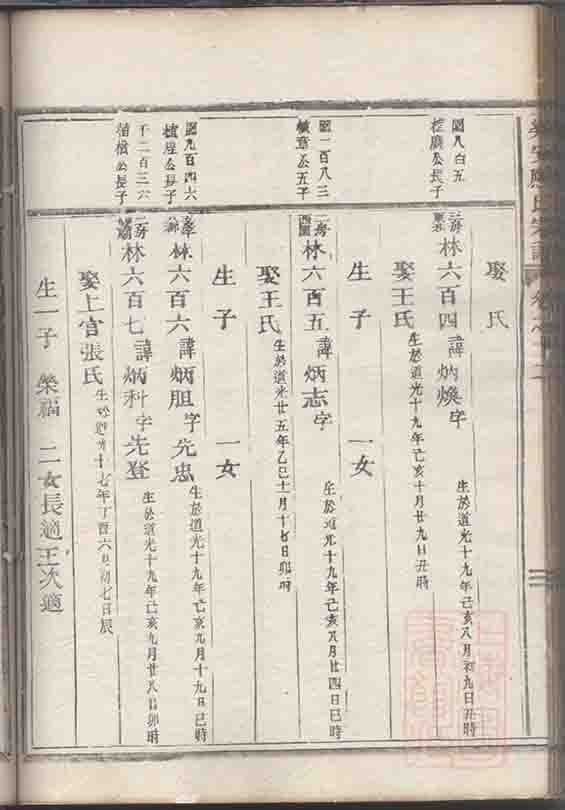 氏宗譜
娶氏
圖八百五
長子
林六百四諱炳煥字
生於道光十九年己亥八月初九日丑時
娶王氏
生於道光十九年己亥十月廿九日丑時
生子 一女
圖一百八三
公五子
林六百五諱炳志字
生於道光十九年己亥八月廿四日巳時
娶王氏
生於道光廿五年乙巳十一月十七日卯時
生子 一女
圖九百四六
公長子
林六百六諱炳胆字先忠
生於道光十九年己亥九月十九日巳時
千二百三六
楷公長子
林六百七諱炳科字先登
生於道光十九年己亥九月廿八日卯時
娶上官張氏
生於道光十七年丁酉六月初七日辰
生一子 榮福 二女長適王次適